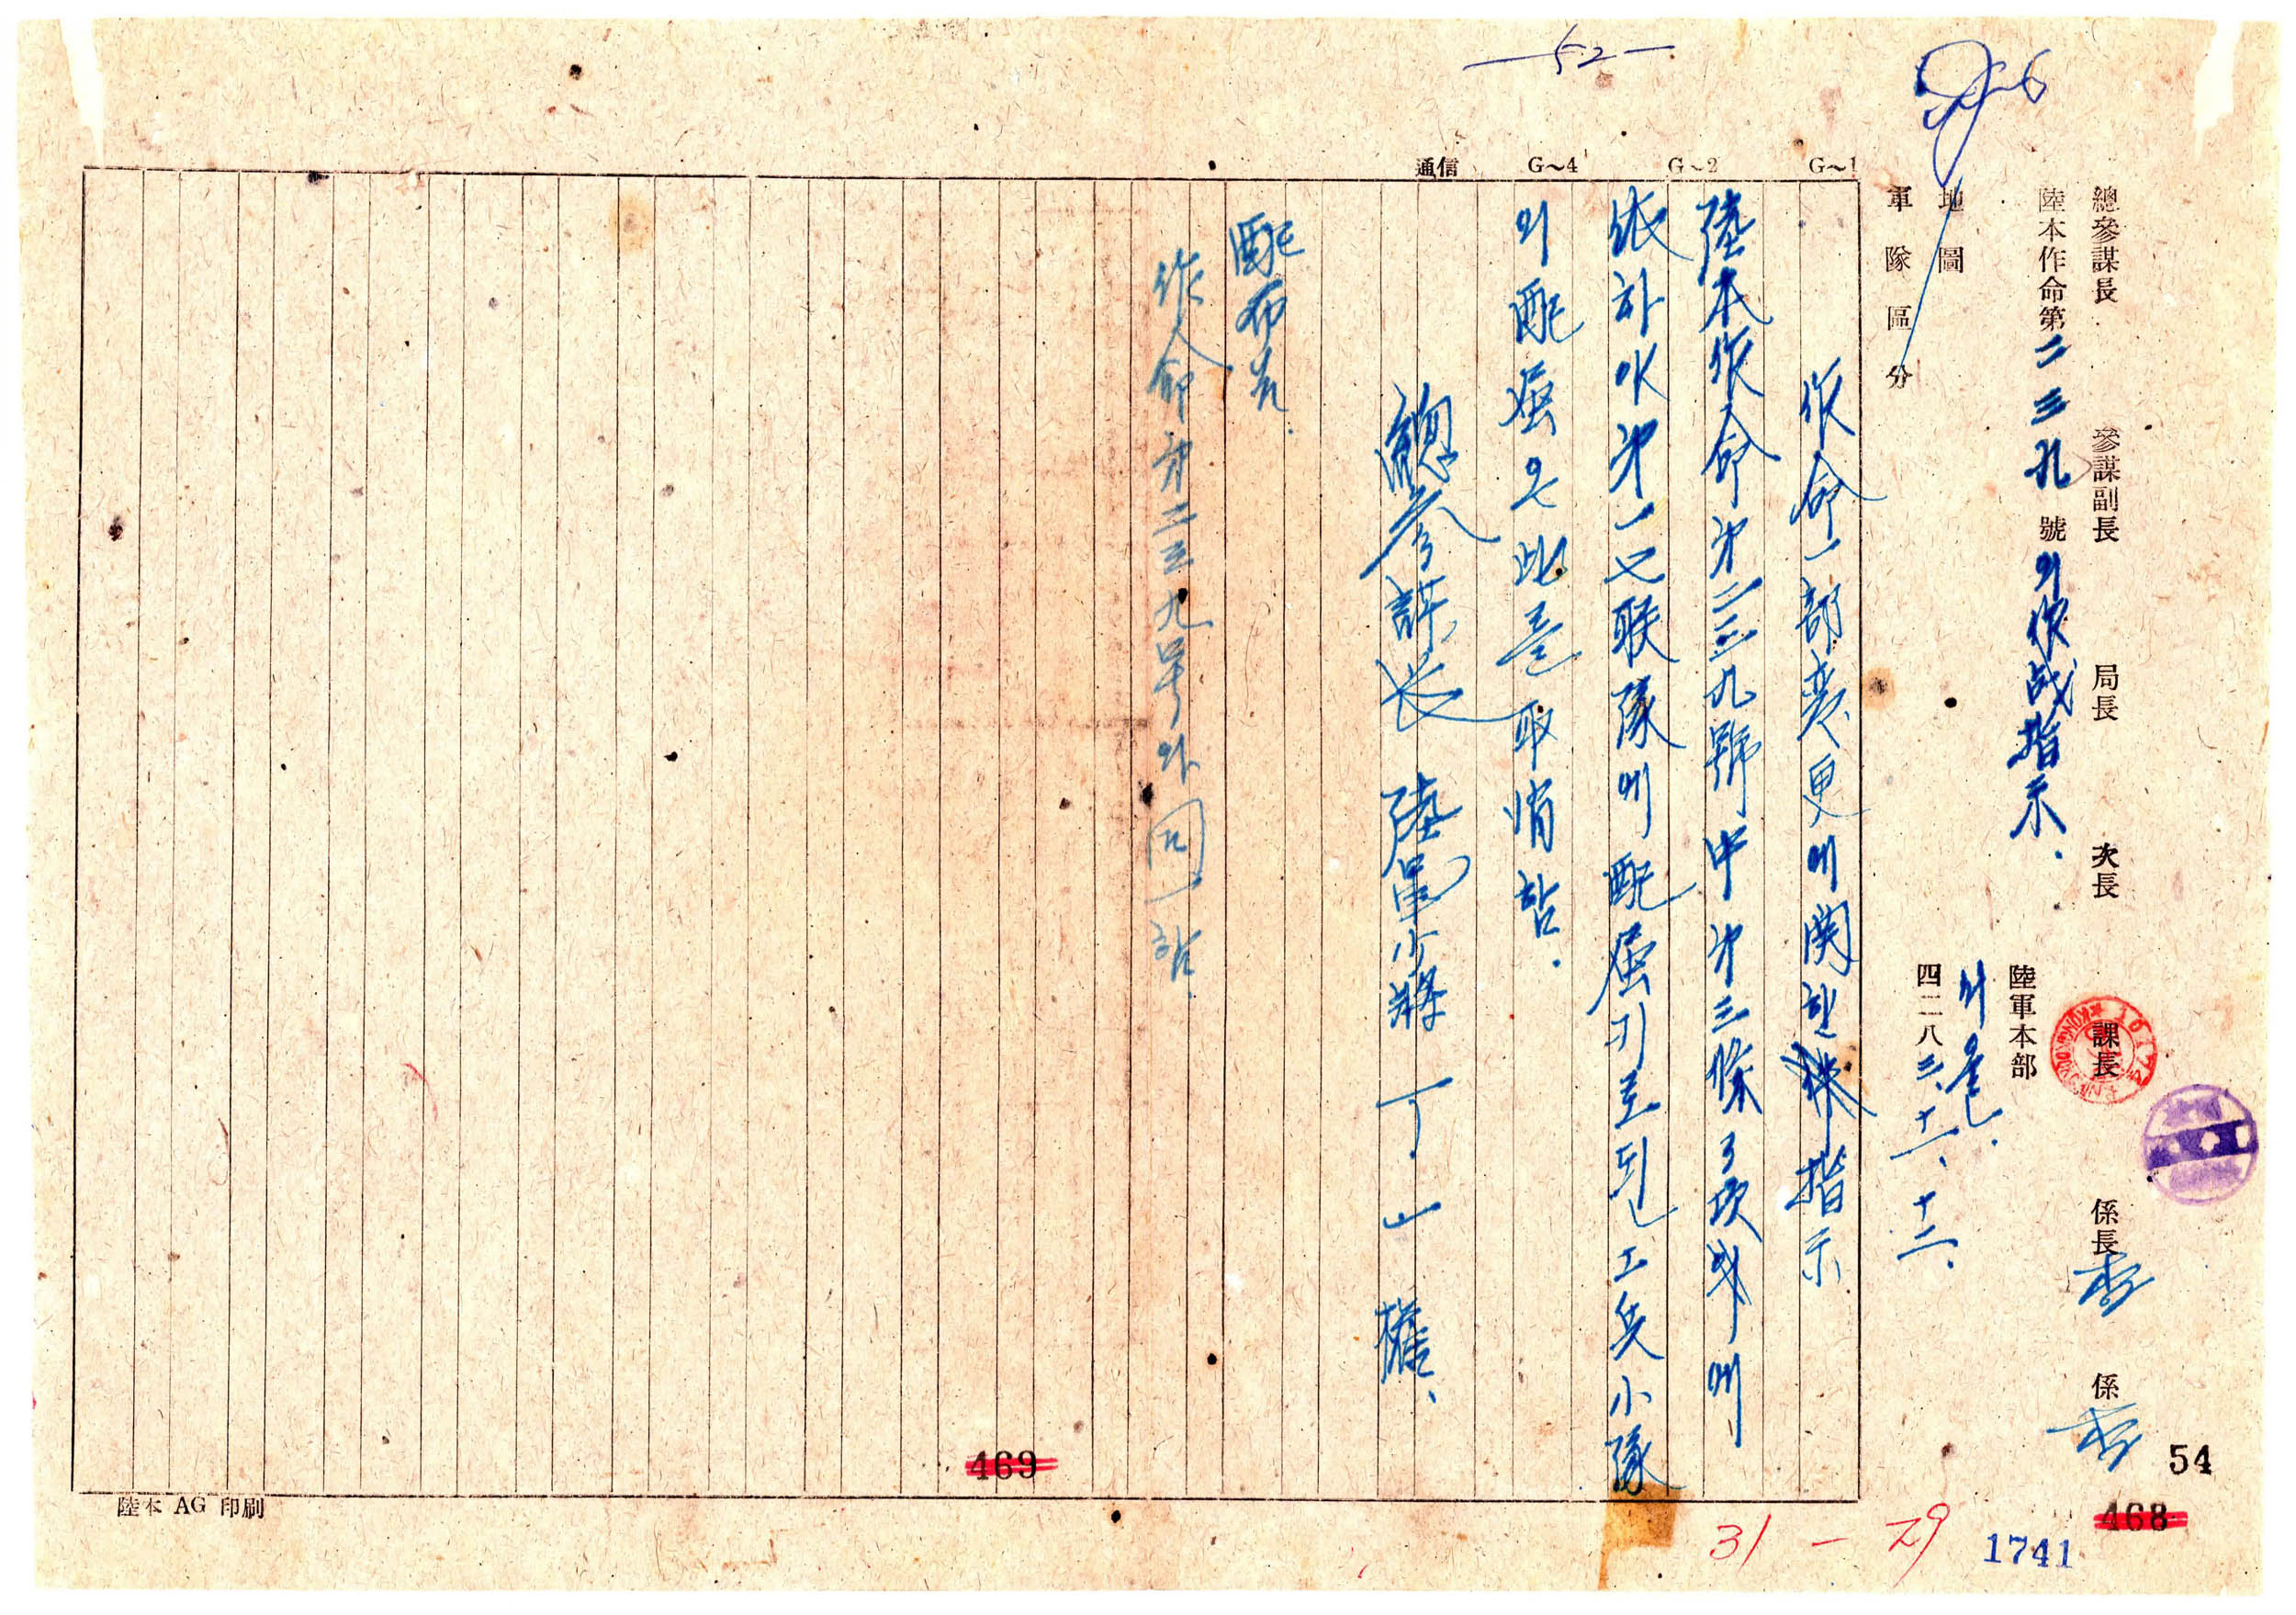 —52—
總參謀長 參謀副長 局長 次長 課長 係長 係
陸本作命第二三九號의作战指示.
陸軍本部
서울.
地圖
四二八三、十一、十二、
軍隊區分
G~1 G~2 G~4 通信
作命一部変更에関한 指示
陸本作命第二三九號中第三條3項 에
依하야第一七联隊에配属키로된工兵小隊
의配属은此를取消함.
總参謀长 陸軍少將 丁一權、
配布先.
作命第二三九号와同一함.
陸本 AG 印刷
469
54
468
31-29
1741